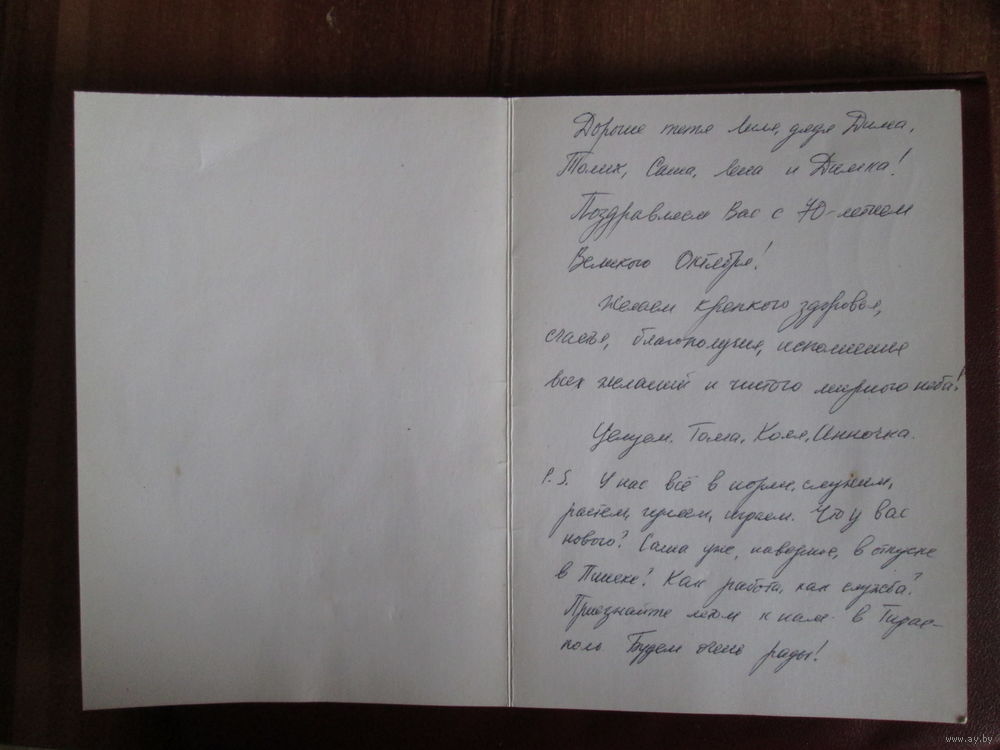 Дорогие тетя Лиля, дядя Дима,
Толик, Саша, Лена и Димка!
Поздравляем Вас с 70-летием
Великого Октября!
Желаем крепкого здоровья,
счастья, благополучия, исполнения
всех желаний и чистого мирного неба!
Целуем. Тома, Коля, Инночка.
P.S. У нас всё в норме, служим,
растем, гуляем, играем. Что у вас
нового? Саша уже, наверное, в отпуске
в Пинске? Как работа, как служба?
Приезжайте летом к нам в Тирас-
поль Будем очень рады!
www.ay.by